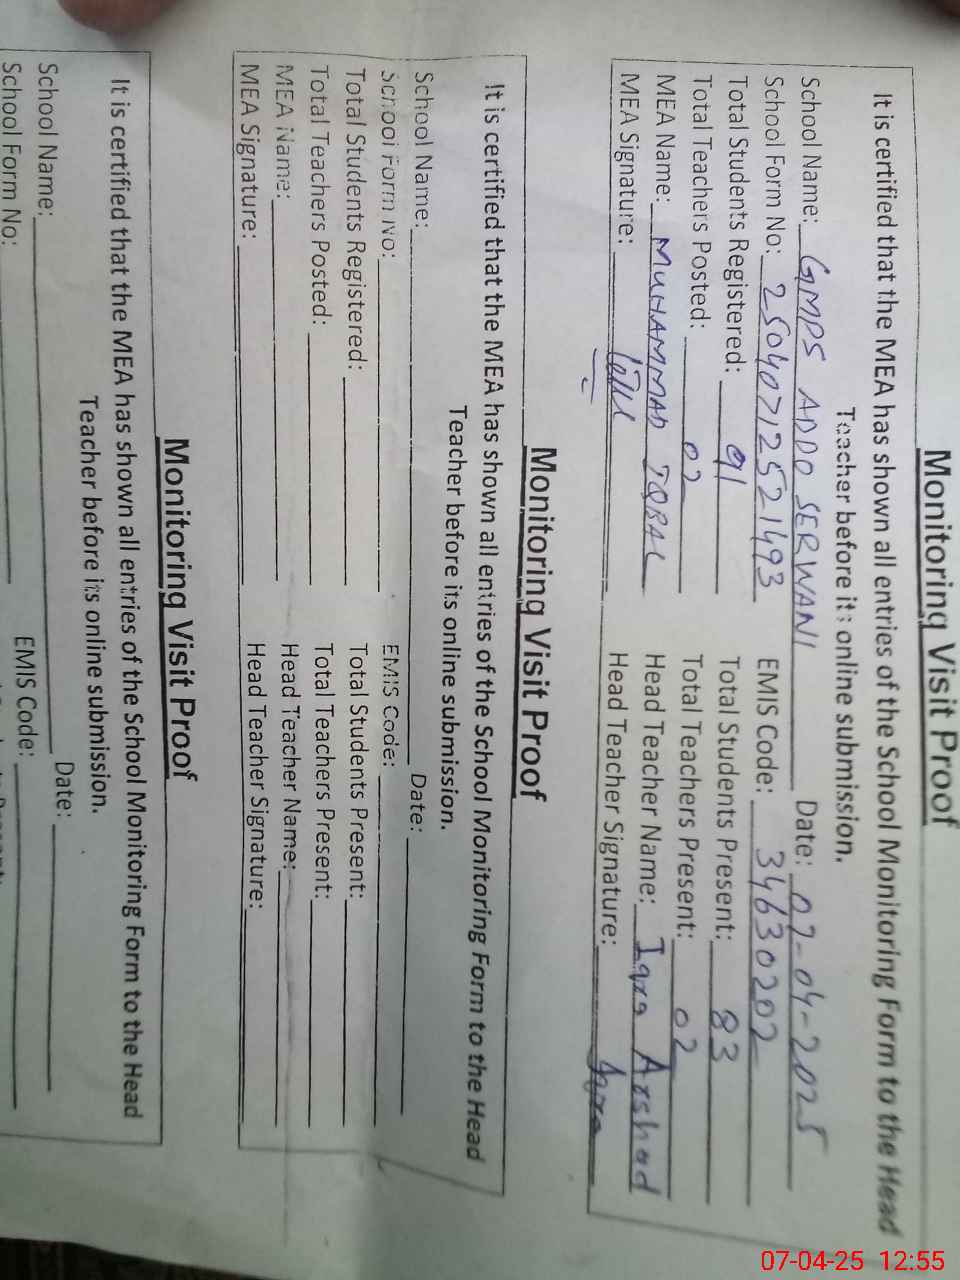 Monitoring Visit Proof
It is certified that the MEA has shown all entries of the School Monitoring Form to the Head
Teacher before its online submission.
School Name: GMPS ADDO SERWANI Date: 07-04-2025
School Form No: 25040712521493 EMIS Code: 34630202
Total Students Registered: 91 Total Students Present: 83
Total Teachers Posted: 02 Total Teachers Present: 02
MEA Name: MUHAMMAD IQBAL Head Teacher Name: Iqra Arshad
MEA Signature: Head Teacher Signature: Iqra
Monitoring Visit Proof
It is certified that the MEA has shown all entries of the School Monitoring Form to the Head
Teacher before its online submission.
School Name: Date:
School Form No: EMIS Code:
Total Students Registered: Total Students Present:
Total Teachers Posted: Total Teachers Present:
MEA Name: Head Teacher Name:
MEA Signature: Head Teacher Signature:
Monitoring Visit Proof
It is certified that the MEA has shown all entries of the School Monitoring Form to the Head
Teacher before its online submission.
School Name: Date:
School Form No: EMIS Code:
07-04-25 12:55